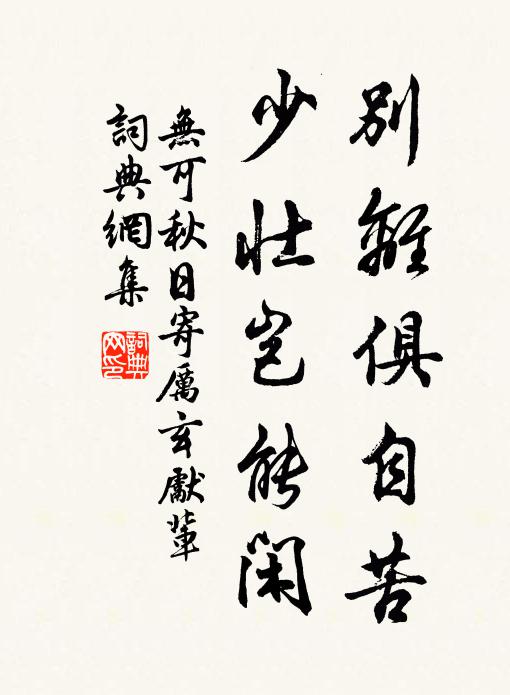 別離俱自苦
少壯豈能閑
無可秋日寄厲玄獻輩
詞典網集
詞典網印